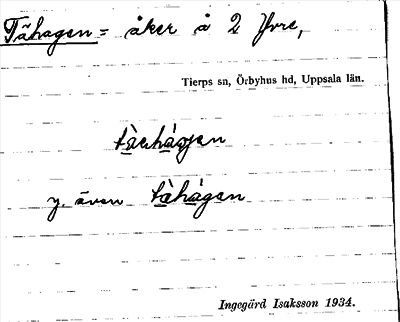 Tåhagen = åker å 2 Yvre,
Tierps sn, Örbyhus hd, Uppsala län.
tå̀hágen
y. även tå̀hágen
Ingegärd Isaksson 1934.